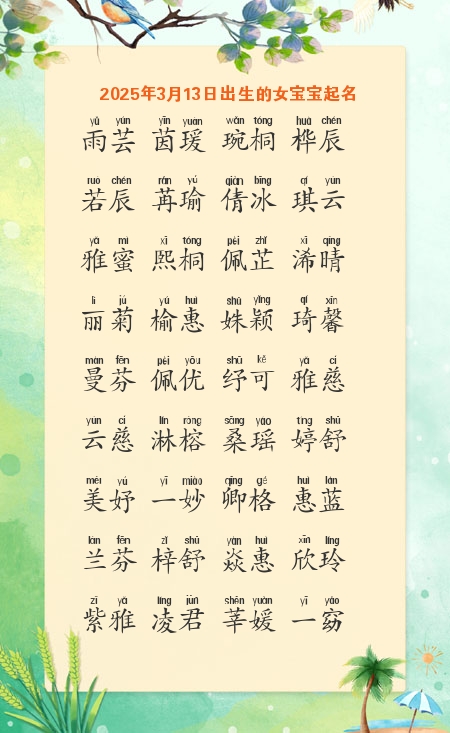 2025年3月13日出生的女宝宝起名
yǔ yún yīn yuàn wǎn tóng huà chén
雨芸 茵瑗 琬桐 桦辰
ruò chén rǎn yú qiàn bīng qí yún
若辰 苒瑜 倩冰 琪云
yǎ mì xī tóng pèi zhǐ xī qíng
雅蜜 熙桐 佩芷 浠晴
lì jú yú huì shū yǐng qí xīn
丽菊 榆惠 姝颖 琦馨
màn fēn pèi yōu shū kě yǎ cí
曼芬 佩优 纾可 雅慈
yún cí lín róng sāng yáo tíng shū
云慈 淋榕 桑瑶 婷舒
měi yú yī miào qīng gé huì lán
美妤 一妙 卿格 惠蓝
lán fēn zǐ shū yàn huì xīn líng
兰芬 梓舒 焱惠 欣玲
zǐ yǎ líng jūn shēn yuán yī yǎo
紫雅 凌君 莘媛 一窈